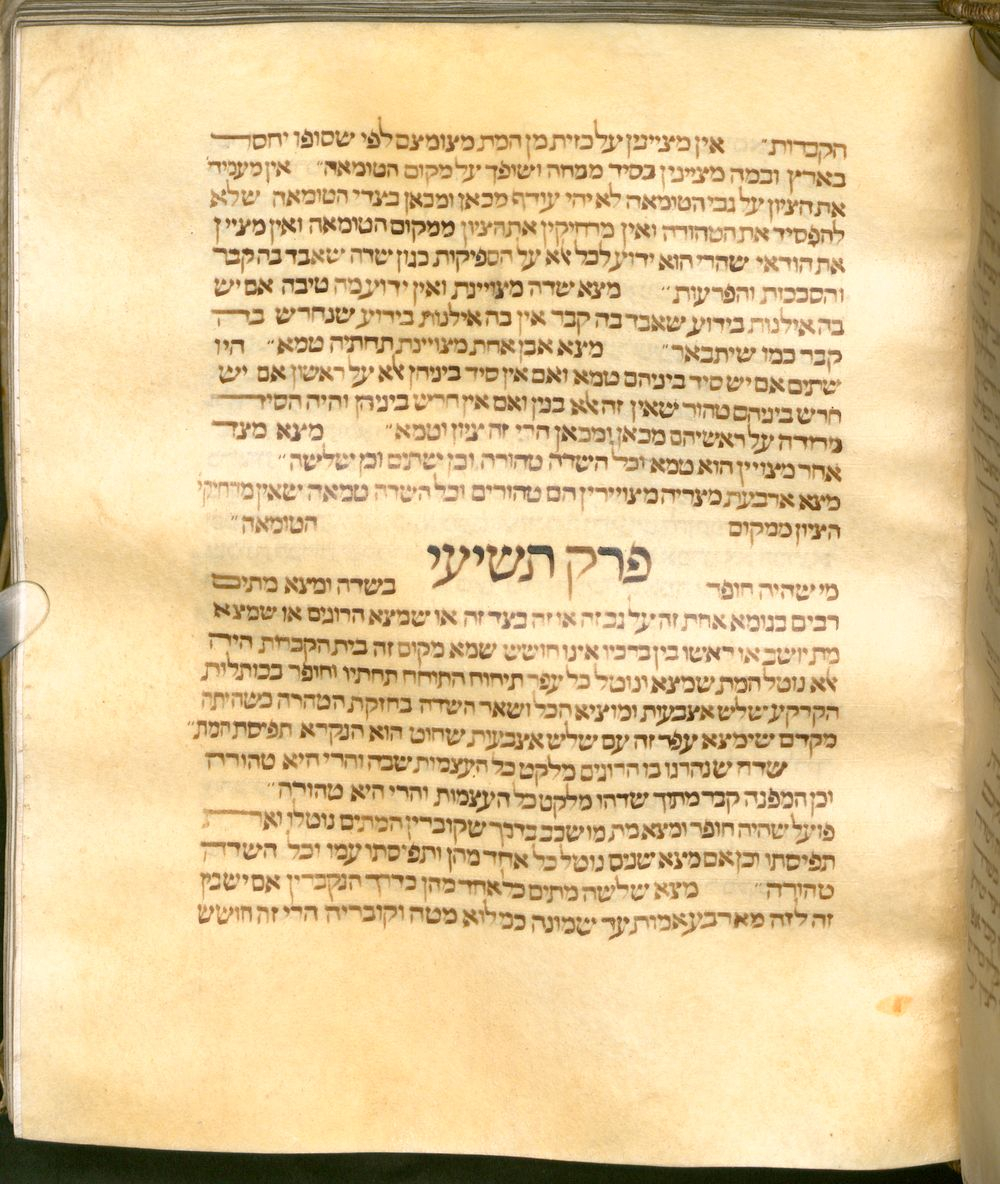 הקברות״ אין מציינין על כזית מן המת מצומצם לפי שסופו יחסר
בארץ ובמה מציינין בסיד ממחה ושופך על מקום הטומאה״ אין מעמידין
את הציון על גבי הטומאה לא יהי עודף מכאן ומכאן בצדי הטומאה שלא
להפסיד את הטהורה ואין מרחיקין את הציון ממקום הטומאה ואין מציין
את הודאי שהרי הוא ידוע לכל לא על הספיקות כגון שדה שאבד בה קבר
והסככות והפרעות״ מצא שדה מצויינת ואין ידוע מה טיבה אם יש
בה אילנות בידוע שאבד בה קבר אין בה אילנות בידוע שנחרש ברה
קבר כמו שיתבאר״ מצא אבן אחת מצויינת תחתיה טמא״ היו
שתים אם יש סיד ביניהם טמא ואם אין סיד ביניהן לא על ראשון אם יש
חרש ביניהם טהור שאין זה לא בנין ואם אין חרש ביניהן והיה הסיד
מרודה על ראשיהם מכאן ומכאן הרי זה ציון וטמא״ מצא מצד
אחר מצויין הוא טמא וכל השדה טהורה וכן שתים וכן שלשה״
מצא ארבעת מצריה מצויירין הם טהורים וכל השדה טמאה שאין מרחיקי
הציון ממקום הטומאה״
פרק תשיעי
מי שהיה חופר בשדה ומצא מתים
רבים בגומא אחת זה על גב זה או זה בצד זה או שמצא הרוגים או שמצא
מת יושב או ראשו בין ברכיו אינו חושש שמא מקום זה בית הקברות הירה
לא נוטל המת שמצא ונוטל כל עפר תיחוח התיחח תחתיו וחופר בכותלות
הקרקע שלש אצבעות ומוציא הכל ושאר השדה בחזקת הטהרה כשהיתה
מקדם שימצא עפר זה עם שלש אצבעות שחוט הוא הנקרא תפיסת המת״
שדה שנהרגו בו הרוגים מלקט כל העצמות שבה והרי היא טהורה
וכן המפנה קבר מתוך שדהו מלקט כל העצמות והרי היא טהורה״
פועל שהיה חופר ומצא מת מושכב כדרך שקוברין המתים נוטלו וארת
תפיסתו וכן אם מצא שנים נוטל כל אחד מהן ותפיסתו עמו וכל השדה
טהורה״ מצא שלשה מתים כל אחד מהן כדרך הנקברין אם יש בין
זה לזה מארבע אמות עד שמונה כמלוא מטה וקובריה הרי זה חושש